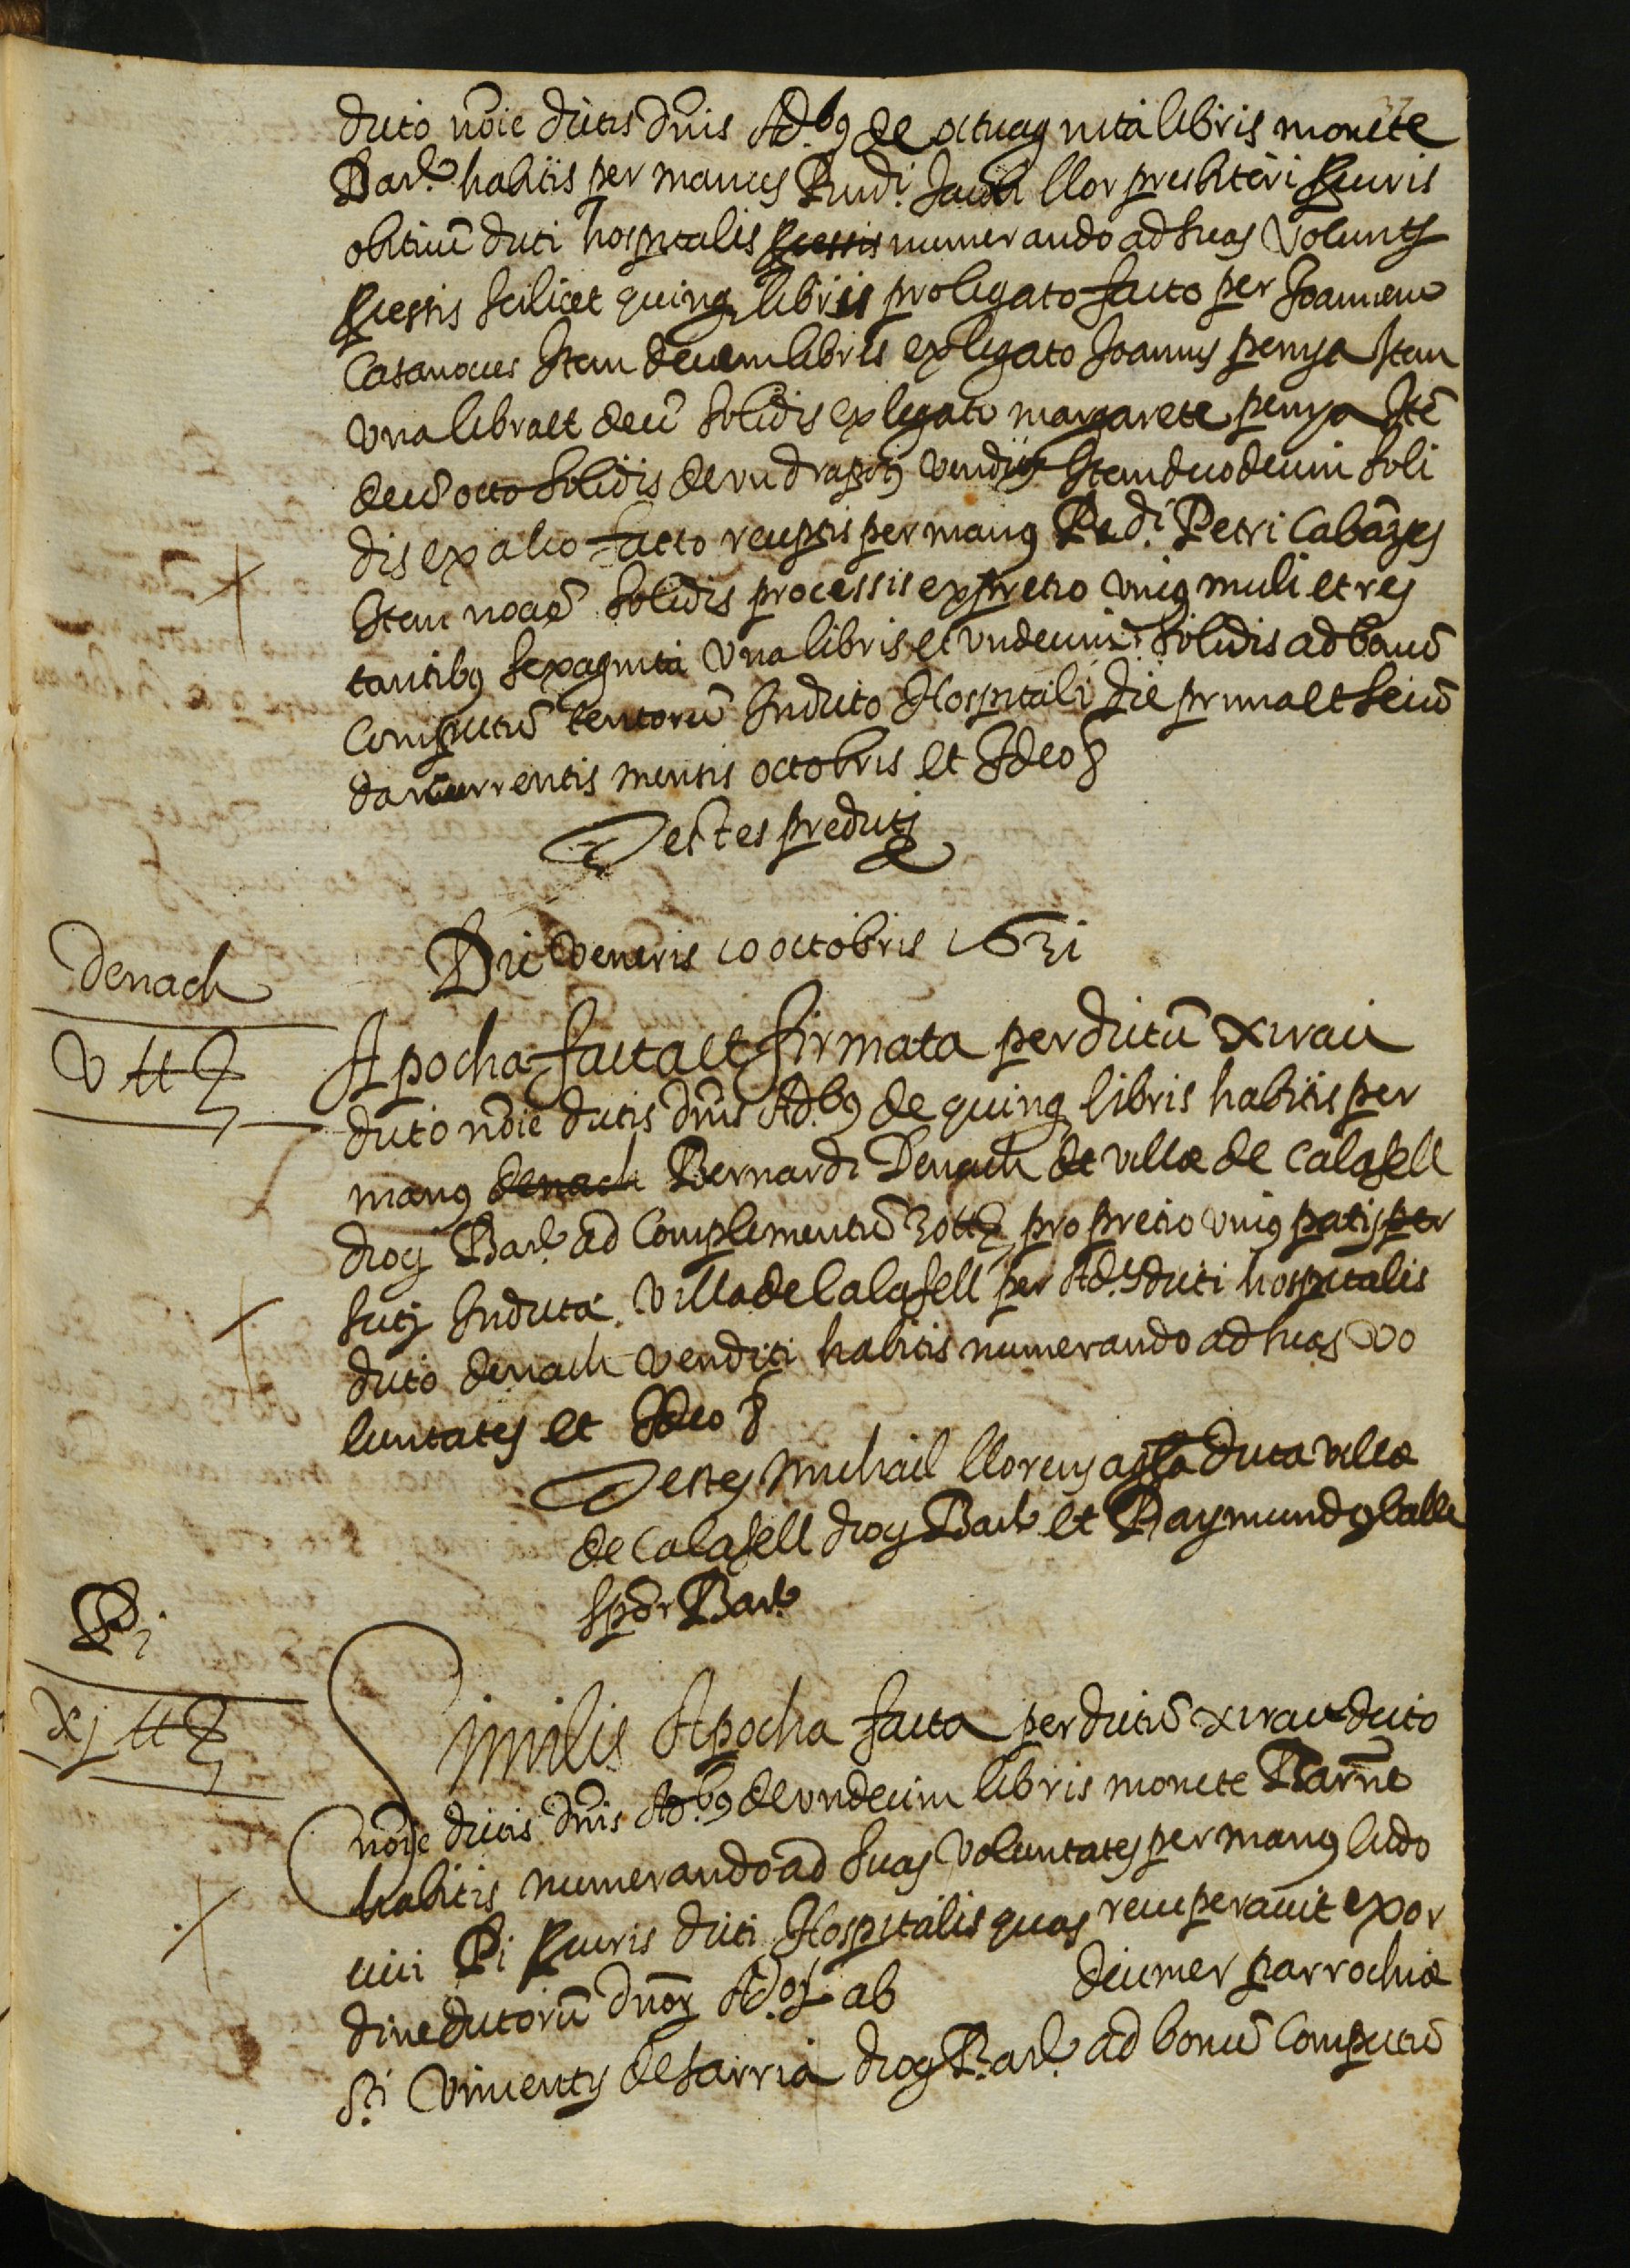 dicto noīe dictis dn̄is Ad.b9 de octuaginta libris monete
Bar.e habitis per manus Rndi. Jacobi llor presbiteri scuris
obitiuū dicti hospitalis numerando ad suas volunts
scilicet quinq libris pro legato facto per Joannem
Casanoves Item decem libris ex legato Joannis penya Item
una libra et decē solidis ex legato margarete penya Itē
decē octo solidis de venditis Item duodecim soli
dis ex alio facto receptis per manus Rdi. Petri Cabāyes
Item novē solidis processis ex pretio unius muli et res
tantibus sexaginta una libris et undecim solidis ad bonū
Computū In dicto Hospitali die prima et secū
da currentis mensis octobris et Ideo &
Testes predicti
Die Veneris 10 octobris 1631
Denach
V ll
Apocha facta et firmata per dictū xirau
dicto noīe dictis dn̄is Ad.b9 de quinq libris habitis per
manus denach Bernardi Denach de villa de Calafell
diog Bar.e ad Complementū 30 ll pro pretio unius patis per
siti In dicta villa de Calafell per Ad. dicti hospitalis
dicto denach venditi habitis numerando ad suas vo
luntates et Ideo &
Testes Michael llorens dicta villa
de Calafell diog Bar.e et Raymundus
Bar.e
Pi
xj ll
Similis Apocha facta per dictū xirau dicto
noīe dictis dn̄is Ad.b9 de undecim libris monete Barn̄e
habitis numerando ad suas voluntates per manus ludo
vici Pi scuris dicti Hospitalis quas recuperavit ex or
dine dictorū dnor Ador ab deumer parrochiæ
Sti Vincentis de sarria diog Bar.e ad bonū Computū